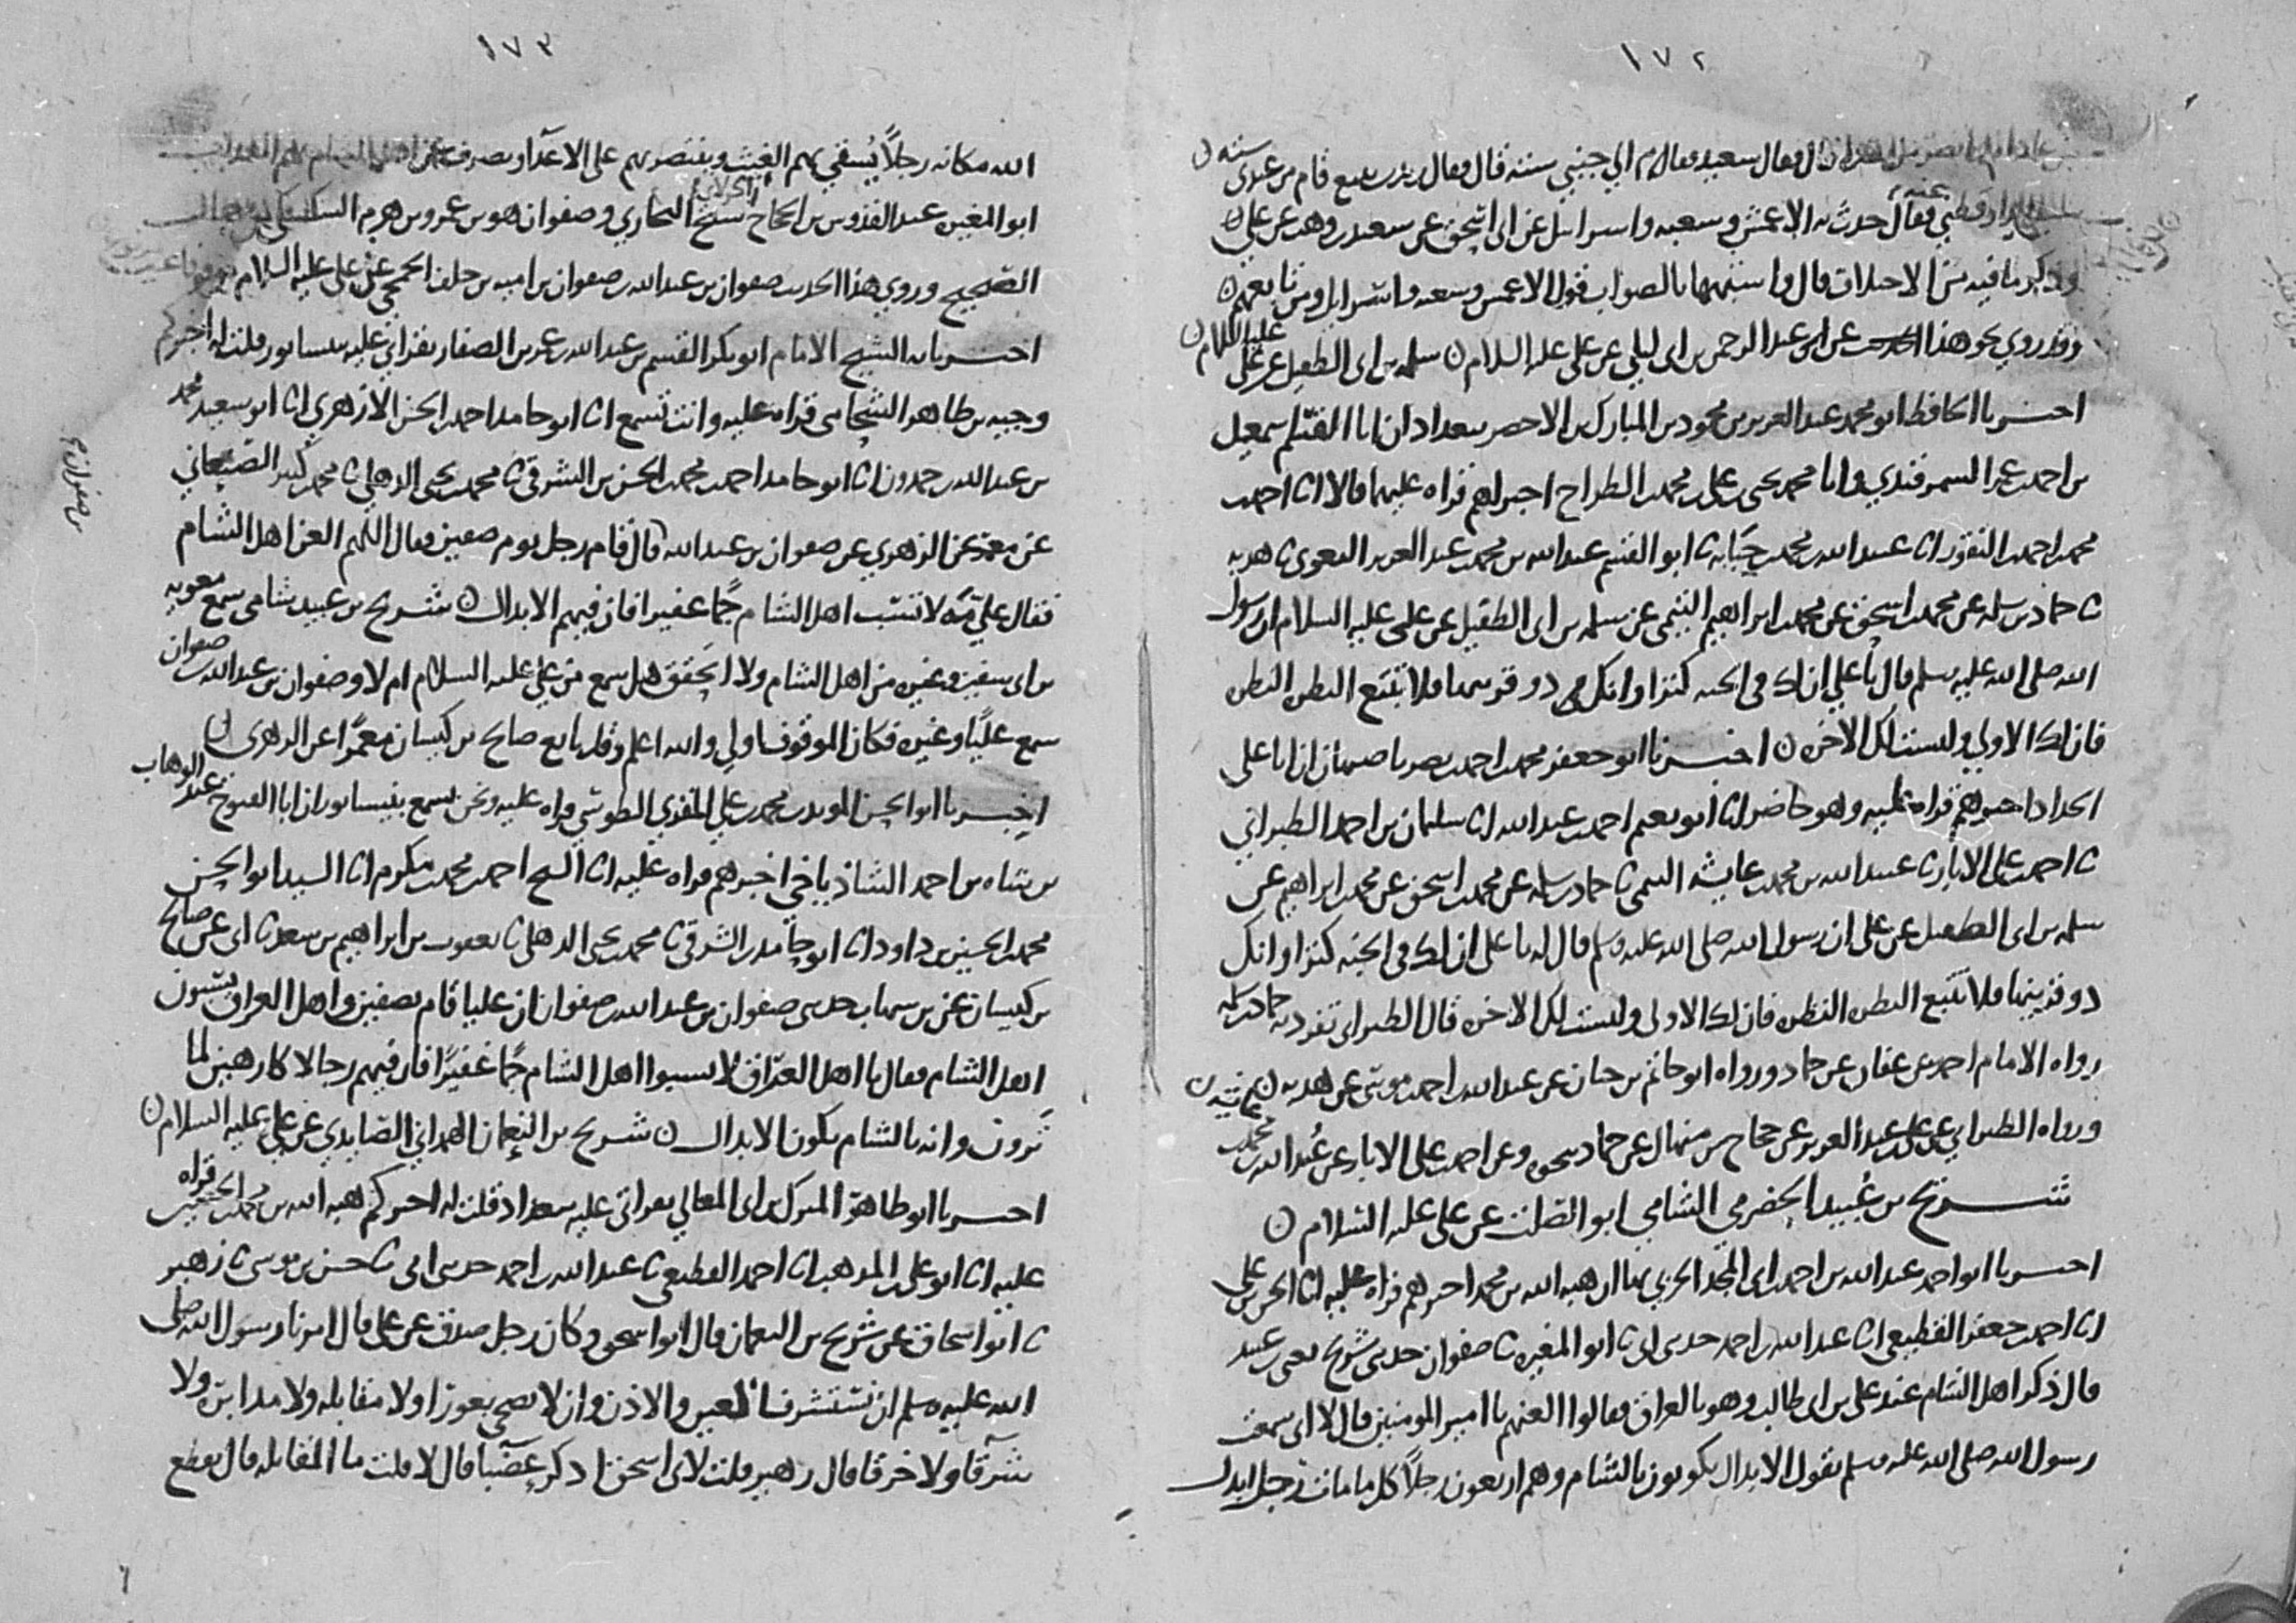 ١٧٢
قال وقال سعيد وقال قم الي جنبي سنة قال فقال زيد بن يثيع قام من عندي ستة
فقال حدث به الاعمش وشعبه واسرائيل عن ابي اسحق عن سعيد بن وهب عن علي
وذكر ما فيه من الاختلاف قال واشبهها بالصواب قول الاعمش وشعبه واسرائيل ومن تابعهم
وقد روي نحو هذا الحديث عن ابن عبد الرحمن بن ابي ليلي عن علي عليه السلام سلمه بن ابي الطفيل عن علي عليه السلام
اخبرنا الحافظ ابو محمد عبد العزيز بن محمود بن المبارك بن الاخضر ببغداد ان ابا القسم اسمعيل
بن احمد بن عمر السمرقندي وابا محمد يحيى بن علي بن محمد بن الطراح اخبراهم قراه عليهما قالا انا احمد بن
محمد بن احمد بن النقور انا عبيد الله بن محمد بن حبابه نا ابو القسم عبد الله بن محمد بن عبد العزيز البغوي نا هدبه
نا حماد بن سلمه عن محمد بن اسحق عن محمد بن ابراهيم التيمي عن سلمه بن ابي الطفيل عن علي عليه السلام ان رسول
الله صلى الله عليه وسلم قال يا علي ان لك في الجنه كنزا وانك ذو قرنيها فلا تتبع النظره النظره
فان لك الاولي وليست لك الاخره اخبرنا ابو جعفر محمد بن احمد بن نصر باصبهان ان ابا علي
الحداد اخبرهم قراه عليه وهو حاضر انا ابو نعيم احمد بن عبد الله انا سليمان بن احمد الطبراني
نا احمد بن علي الابار نا عبيد الله بن محمد بن عايشه التيمي نا حماد بن سلمه عن محمد بن اسحق عن محمد بن ابراهيم عن
سلمه بن ابي الطفيل عن علي ان رسول الله صلى الله عليه وسلم قال له يا علي ان لك في الجنه كنزا وانك
ذو قرنيها فلا تتبع النظره النظره فان لك الاولى وليست لك الاخره قال الطبراني تفرد به حماد بن سلمه
رواه الامام احمد عن عفان عن حماد ورواه ابو حاتم بن حبان عن عبد الله بن احمد بن موسى عن هدبه
ورواه الطبراني عن علي بن عبد العزيز عن حجاج بن منهال عن حماد بنحوه وعن احمد بن علي الابار عن عبيد الله بن محمد بن عايشه
شريح بن عبيد الحضرمي الشامي ابو الصلت عن علي عليه السلام
اخبرنا ابو احمد عبد الله بن احمد بن ابي المجد الحربي بها ان هبه الله بن محمد اخبرهم قراه عليه انا الحسن بن علي
انا احمد بن جعفر القطيعي انا عبد الله بن احمد حدثني ابي نا ابو المغيره نا صفوان حدثني شريح يعني بن عبيد
قال ذكر اهل الشام عند علي بن ابي طالب وهو بالعراق فقالوا العنهم يا امير المومنين قال لا اني سمعت
رسول الله صلى الله عليه وسلم يقول الابدال يكونون بالشام وهم اربعون رجلاً كل ما مات رجل ابدل
١٧٣
الله مكانه رجلاً يُسقي بهم الغيث وينتصر بهم على الاعداء ويصرف عن اهل الشام بهم العذاب
ابو المغيره عبد القدوس بن الحجاج الخولاني شيخ البخاري وصفوان هو بن عمرو بن هرم السكسكي
الصحيح وروي هذا الحديث صفوان بن عبد الله بن صفوان بن اميه بن خلف الجمحي عن علي عليه السلام
اخبرنا به الشيخ الامام ابو بكر القسم بن عبد الله بن عمر بن الصفار بقراتي عليه بنيسابور قلت له اخبركم
وجيه بن طاهر الشحامي قراه عليه وانت تسمع انا ابو حامد احمد بن الحسن الازهري انا ابو سعيد محمد
بن عبد الله بن حمدون انا ابو حامد احمد بن محمد بن الحسن بن الشرقي نا محمد بن يحيى الذهلي نا محمد بن كثير الصنعاني
عن معمر عن الزهري عن صفوان بن عبد الله قال قام رجل يوم صفين وقال اللهم العن اهل الشام
فقال علي مه لا تسب اهل الشام جمًّا غفيرا فان فيهم الابدال شريح بن عبيد شامي سمع معويه
بن ابي سفين وغيره من اهل الشام ولا اتحقق هل سمع من علي عليه السلام ام لا وصفوان بن عبد الله بن صفوان
سمع عليًّا وغيره فكان الموقوف اولي والله اعلم وقد تابع صالح بن كيسان معمرًا عن الزهري
اخبرنا ابو الحسن المويد بن محمد بن علي المقري الطوسي قراه عليه ونحن نسمع بنيسابور ان ابا الفتوح عبد الوهاب
بن شاه بن احمد الشاذياخي اخبرهم قراه عليه انا الشيخ احمد بن محمد بن مكرم انا السيد ابو الحسن
محمد بن الحسين بن داود انا ابو حامد بن الشرقي نا محمد بن يحيى الذهلي نا يعقوب بن ابراهيم بن سعد نا ابي عن صالح
بن كيسان عن بن شهاب حدثني صفوان بن عبد الله بن صفوان ان عليا قام بصفين واهل العراق يسبون
اهل الشام فقال يا اهل العراق لا تسبوا اهل الشام جمًّا غفيرًا فان فيهم رجالا كارهين لما
ترون وانه بالشام يكون الابدال شريح بن النعمان الهمداني الصايدي عن علي عليه السلام
اخبرنا ابو طاهر المبارك بن ابي المعالي بقراتي عليه ببغداد قلت له اخبركم هبه الله بن محمد بن الحصين قراه
عليه انا ابو علي بن المذهب انا احمد القطيعي نا عبد الله بن احمد حدثني ابي نا حسن بن موسى نا زهير
نا ابو اسحاق عن شريح بن النعمان قال ابو اسحق وكان رجل صدق عن علي قال امرنا رسول الله صلى
الله عليه وسلم ان نستشرف العين والاذن وان لا نضحي بعورا ولا مقابله ولا مدابره ولا
شرقا ولا خرقا قال زهير قلت لابي اسحق اذكر عضبا قال لا قلت ما المقابله قال يقطع